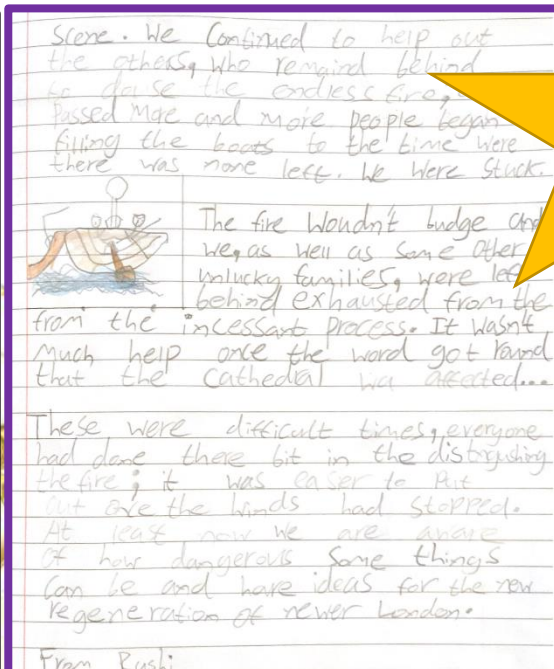 scene. We Continued to help out
the others, who remaind behind
to douse the endless fire,
Passed More and more people began
filling the boats to the time were
there was none left. We were stuck.
The fire Woudn't budge and
we, as well as some other
unlucky families, were left
behind exhausted from the
from the incessant process. It wasn't
much help once the word got round
that the Cathedral affected...
These were difficult times, everyone
had done there bit in the distngushing
the fire; it was easer to Put
out once the winds had stopped.
At least now we are aware
of how dangerous some things
can be and have ideas for the new
regeneration of newer London.
From Rushi